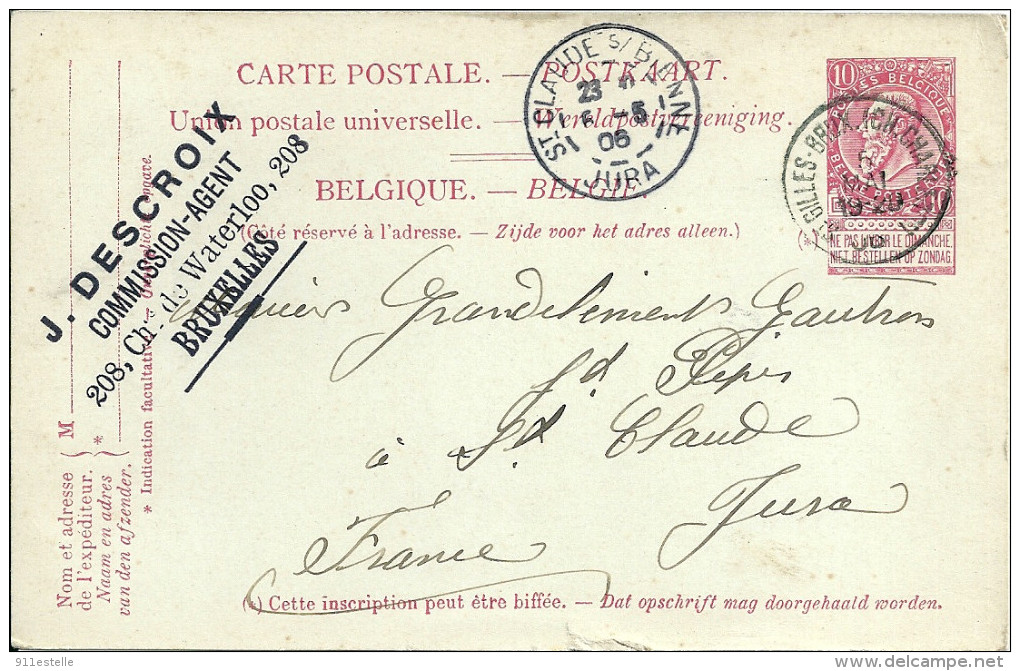 CARTE POSTALE. — POSTKAART.
Union postale universelle. — Wereldpostvereeniging.
BELGIQUE. — BELGIE
(Côté réservé à l'adresse. — Zijde voor het adres alleen.)
J. DESCROIX
COMMISSION-AGENT
208, Ch. de Waterloo, 208
BRUXELLES
ST CLAUDE S/ BIENNE
23
06
JURA
10
POSTES BELGIQUE
10
NE PAS LIVRER LE DIMANCHE,
NIET BESTELLEN OP ZONDAG.
Grandclement Gautron
à St Claude
Jura
France
M
Nom et adresse
de l'expéditeur.
Naam en adres
van den afzender.
*
* Indication facultative.
(*) Cette inscription peut être biffée. — Dat opschrift mag doorgehaald worden.
911estelle
delcampe.net